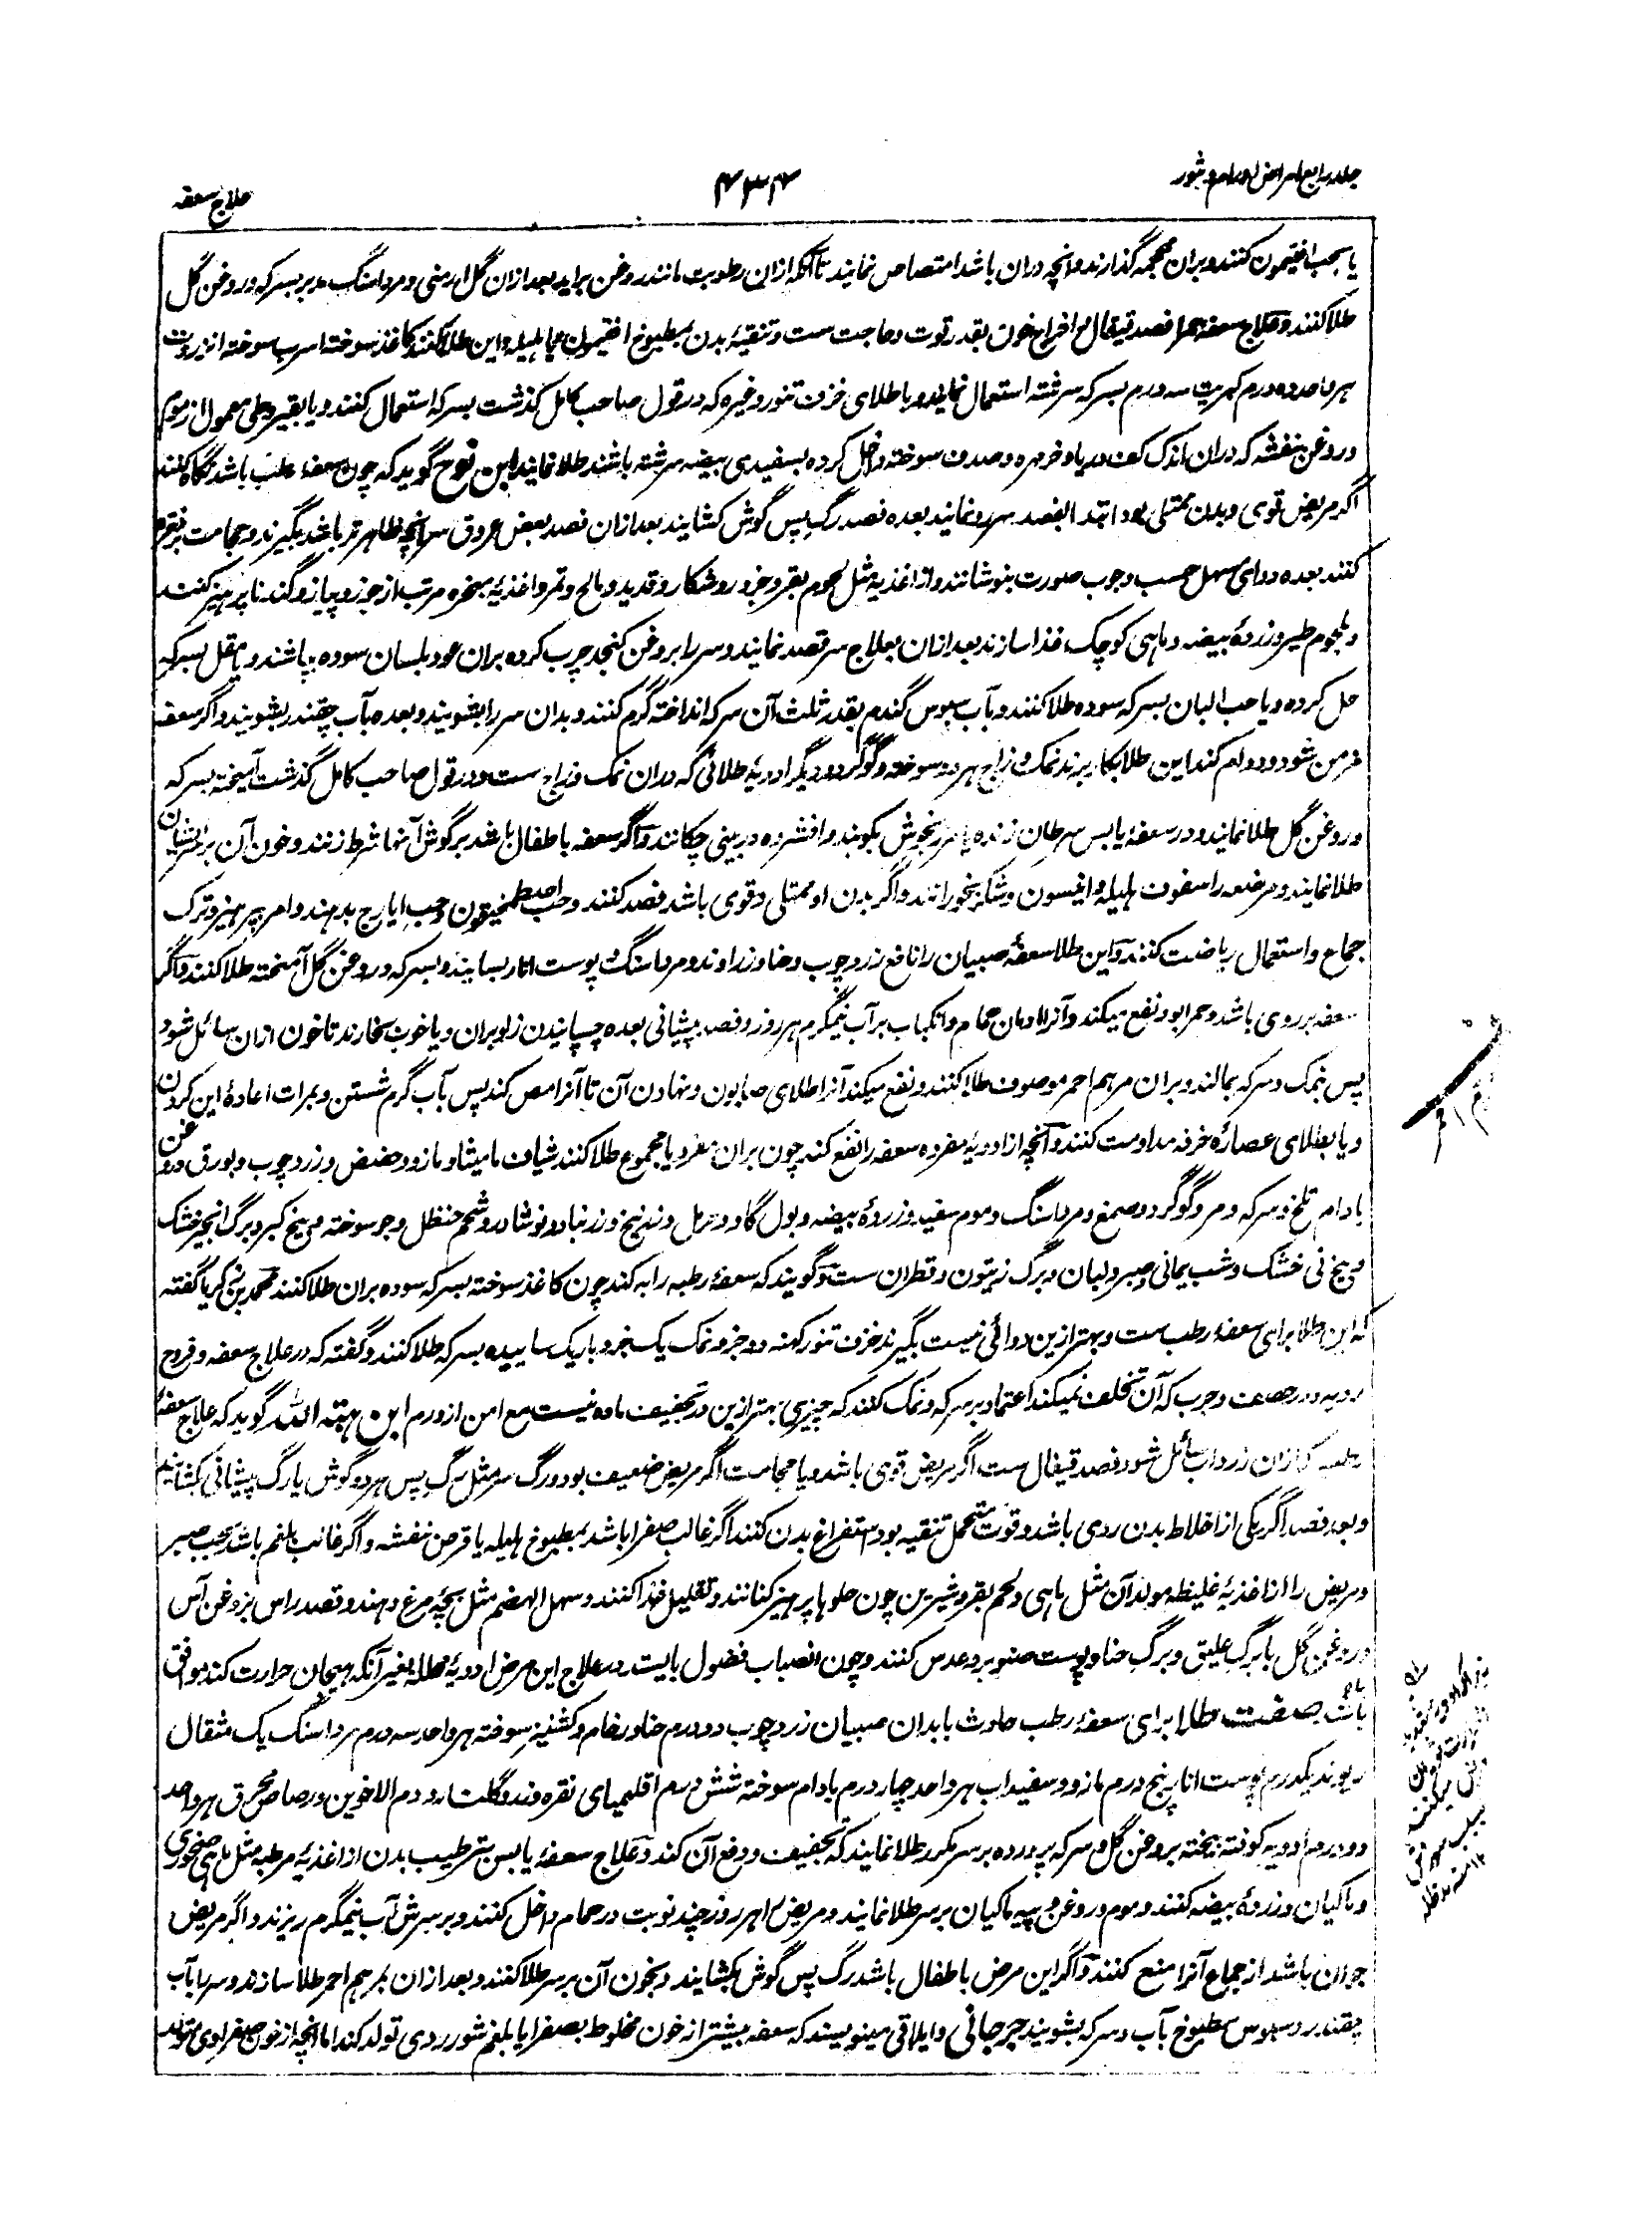 جلد رابع امراض اورام و بثور
۴۳۴
علاج سعفه
یا بحب افتیمون کنند و بران محجمه گذارند و انچه دران باشد امتصاص نمایند تا آنکه ازان رطوبت مانند روغن براید بعد ازان گل ارمنی و مرداسنگ مدبر بسرکه و روغن گل
طلا کنند و علاج سعفه حمرا فصد قیفال و اخراج خون بقدر قوت و حاجت ست و تنقیهٔ بدن بمطبوخ افتیمون یا بهلیله و این طلا کنند کاغذ سوخته اسرب سوخته انزروت
هر واحد ده درم کبریت سه درم بسرکه سرشته استعمال نمایند و یا طلای خزف تنور و غیره که در قول صاحب کامل گذشت بسرکه استعمال کنند و یا بقیروطی معمول از موم
و روغن بنفشه که دران اندک کف دریا و خرمهره و صدف سوخته داخل کرده بسفیدی بیضه سرشته باشند طلا نمایند ابن نوح گوید که چون سعفه صلب باشد نگاه کنند
اگر مریض قوی و بدن ممتلی بود ابتدا بفصد سررو نمایند بعده فصد رگ پس گوش کشایند بعد ازان فصد بعض عروق سر انچه ظاهر تر باشد بگیرند و حجامت بر نقره
کنند بعده دوای مسهل حسب وجوب صورت بنوشانند و از اغذیه مثل لحوم بقر و جزور و شکار و قدید و مالح و تمر و اغذیهٔ مبخره مرتب از جزر و پیاز و گندنا پرهیز کنند
و بلحوم طیر و زردهٔ بیضه و ماهی کوچک غذا سازند بعد ازان بعلاج سر قصد نمایند و سر را بروغن کنجد چرب کرده بران عود بلسان سوده بپاشند و یا مقل بسرکه
حل کرده و یا حب البان بسرکه سوده طلا کنند و بآب سبوس گندم بقدر ثلث آن سرکه انداخته گرم کنند و بدان سر را بشویند و بعده بآب چقندر بشویند و اگر سعفه
مزمن شود و دوام کند این طلا بکار برند نمک و زاج هر دو سوخته و گوگرد و دیگر ادویهٔ طلائی که دران نمک و زاج ست و در قول صاحب کامل گذشت آمیخته بسرکه
و روغن گل طلا نمایند و در سعفهٔ یابس سرطان زنده با مرزنجوش بکوبند و افشرده در بینی چکانند و اگر سعفه باطفال باشد بر گوش آنها شرط زنند و خون آن بر سر ایشان
طلا نمایند و مرضعه را سفوف هلیله و انیسون و شکر بخورانند و اگر بدن او ممتلی و قوی باشد فصد کنند و حب اصطمخیقون و حب ایارج بدهند و امر بپرهیز و ترک
جماع و استعمال ریاضت کنند و این طلا سعفهٔ صبیان را نافع زردچوب و حنا و زراوند و مرداسنگ و پوست انار بسایند و بسرکه و روغن گل آمیخته طلا کنند و اگر
سعفه بر روی باشد و حمرا بود نفع میکند آنرا ادمان حمام و انکباب بر آب نیمگرم هر روز و فصد پیشانی بعده چسپانیدن زلو بران و یا خوب بخارند تا خون ازان سائل شود
پس بنمک و سرکه بمالند و بران مرهم احمر موصوف طلا کنند و نفع میکند آنرا طلای صابون و نهادن آن تا آنرا مص کند پس بآب گرم شستن و بمرات اعادهٔ این کردن
و یا بطلای عصارهٔ خرفه مداومت کنند و آنچه از ادویهٔ مفرده سعفه را نفع کند چون بران مفرد یا مجموع طلا کنند شیاف مامیثا و مازو و حضض و زردچوب و بورق و روغن
بادام تلخ و سرکه و مر و گوگرد و صمغ و مرداسنگ و موم سفید و زردهٔ بیضه و بول گاو و خردل و زرنیخ و زرنباد و نوشادر و شحم حنظل و جو سوخته و بیخ کبر و برگ انجیر خشک
و بیخ نی خشک و شب یمانی و صبر و لبان و برگ زیتون و قطران ست و گویند که سعفهٔ رطبه را به کند چون کاغذ سوخته بسرکه سوده بران طلا کنند محمد بن زکریا گفته
که این طلا برای سعفهٔ رطب ست و بهتر ازین دوائی نیست بگیرند خزف تنور کهنه دو جزو نمک یک جزو باریک ساییده بسرکه طلا کنند و گفته که در علاج سعفه و قروح
ردیه و در حصف و جرب که آن تخلف نمیکند اعتماد بر سرکه و نمک کنند که چیزی بهتر ازین در تجفیف ماده نیست مع امن از ورم ابن هبة الله گوید که علاج سعفهٔ
رطب که ازان زرداب سائل شود فصد قیفال ست اگر مریض قوی باشد و یا حجامت اگر مریض ضعیف بود و رگ سر مثل رگ پس هر دو گوش یا رگ پیشانی بکشایند
و بعد فصد اگر یکی از اخلاط بدن ردی باشد و قوت متحمل تنقیه بود استفراغ بدن کنند اگر غالب صفرا باشد بمطبوخ هلیله یا قرص بنفشه و اگر غالب بلغم باشد بحب صبر
و مریض را از اغذیهٔ غلیظه مولد آن مثل ماهی و لحم بقر و شیرین چون حلوها پرهیز کنانند و تقلیل غذا کنند و سهل الهضم مثل بچهٔ مرغ دهند و قصد راس بروغن آس
و روغن گل با برگ علیق و برگ حنا و پوست صنوبر و عدس کنند و چون انصباب فضول بایست در علاج این مرض ادویهٔ محلله بغیر آنکه هیجان حرارت کند موافق
باشد صفت طلا برای سعفهٔ رطب حادث بابدان صبیان زردچوب دو درم حنا و رخام و کشنیز سوخته هر واحد سه درم مرداسنگ یک مثقال
ریوند یکدرم پوست انار پنج درم مازو و سفیداب هر واحد چار درم بادام سوخته شش درم اقلیمیای نقره و ند و گلنار و دم الاخوین و رصاص محرق هر واحد
دو درم ادویه کوفته بیخته بروغن گل و سرکه پرورده بر سر مکرر طلا نمایند که تجفیف و دفع آن کند و علاج سعفهٔ یابس ترطیب بدن از اغذیهٔ مرطبه مثل ماهی صخوری
و ماکیان و زردهٔ بیضه کنند و موم و روغن و پیه ماکیان بر سر طلا نمایند و مریض را هر روز چند نوبت در حمام داخل کنند و بر سرش آب نیمگرم ریزند و اگر مریض
جوان باشد از جماع آنرا منع کنند و اگر این مرض باطفال باشد رگ پس گوش بکشایند و بخون آن بر سر طلا کنند و بعد ازان مرهم احمر طلا سازند و سر بآب
چقندر و سبوس مطبوخ بآب و سرکه بشویند جرجانی و ایلاقی مینویسند که سعفه بیشتر از خون مخلوط بصفرا یا بلغم شور ردی تولد کند اما انچه از خون صفراوی تولد